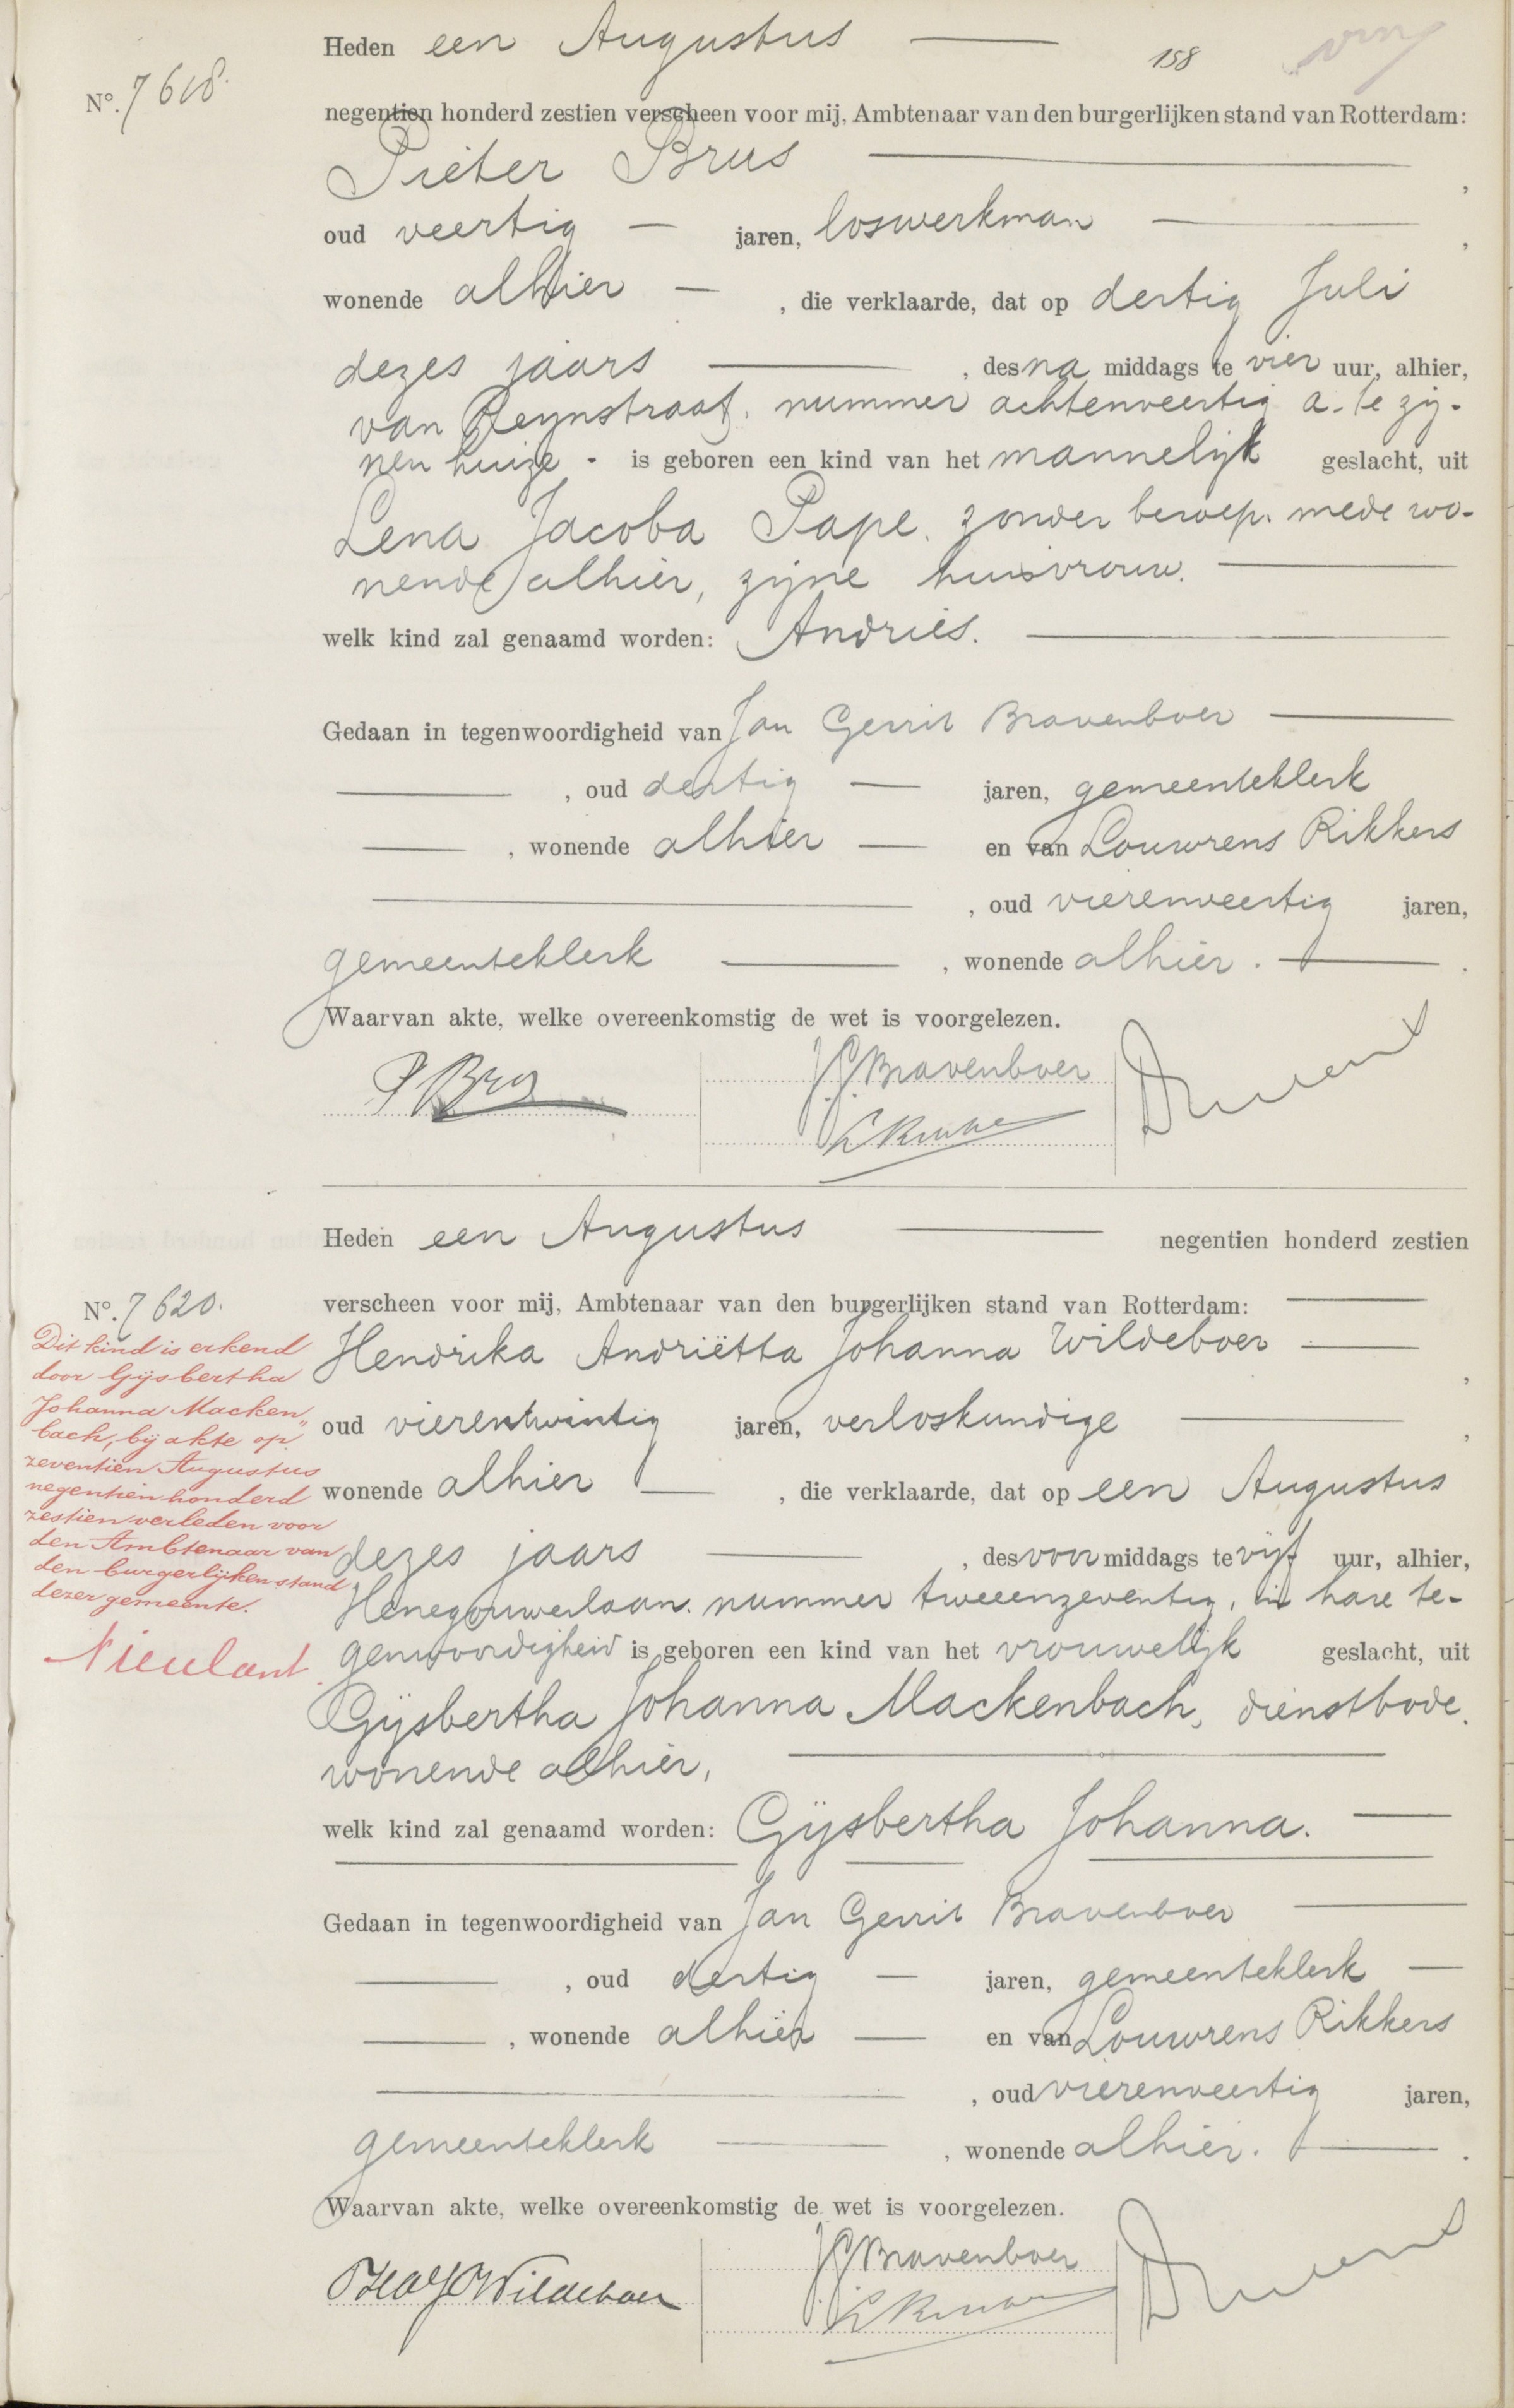 Heden een Augustus
158
Nº. 7618.
negentien honderd zestien verscheen voor mij, Ambtenaar van den burgerlijken stand van Rotterdam:
Pieter Brus ,
oud veertig jaren, loswerkman ,
wonende alhier , die verklaarde, dat op dertig Juli
dezes jaars , des na middags te vier uur, alhier,
van Reynstraat, nummer achtenveertig a. te zij-
nen huize - is geboren een kind van het mannelijk geslacht, uit
Lena Jacoba Pape, zonder beroep, mede wo-
nende alhier, zijne huisvrouw.
welk kind zal genaamd worden: Andries.
Gedaan in tegenwoordigheid van Jan Gerrit Bravenboer
, oud dertig jaren, gemeenteklerk
, wonende alhier en van Louwrens Rikkers
, oud vierenveertig jaren,
gemeenteklerk , wonende alhier.
Waarvan akte, welke overeenkomstig de wet is voorgelezen.
P Brus
JGBravenboer
Heden een Augustus negentien honderd zestien
Nº. 7620.
verscheen voor mij, Ambtenaar van den burgerlijken stand van Rotterdam:
Hendrika Andriëtta Johanna Wildeboer ,
oud vierentwintig jaren, verloskundige ,
wonende alhier , die verklaarde, dat op een Augustus
dezes jaars , des voor middags te vijf uur, alhier,
Henegouwerlaan, nummer tweeenzeventig, in hare te-
genwoordigheid is geboren een kind van het vrouwelijk geslacht, uit
Gijsbertha Johanna Mackenbach, dienstbode,
wonende alhier,
welk kind zal genaamd worden: Gijsbertha Johanna.
Dit kind is erkend
door Gijsbertha
Johanna Macken„
bach, bij akte op
zeventien Augustus
negentienhonderd
zestien verleden voor
den Ambtenaar van
den burgerlijken stand
dezer gemeente.
Nieulant
Gedaan in tegenwoordigheid van Jan Gerrit Bravenboer
, oud dertig jaren, gemeenteklerk
, wonende alhier en van Louwrens Rikkers
, oud vierenveertig jaren,
gemeenteklerk , wonende alhier.
Waarvan akte, welke overeenkomstig de wet is voorgelezen.
HAJWildeboer
JGBravenboer